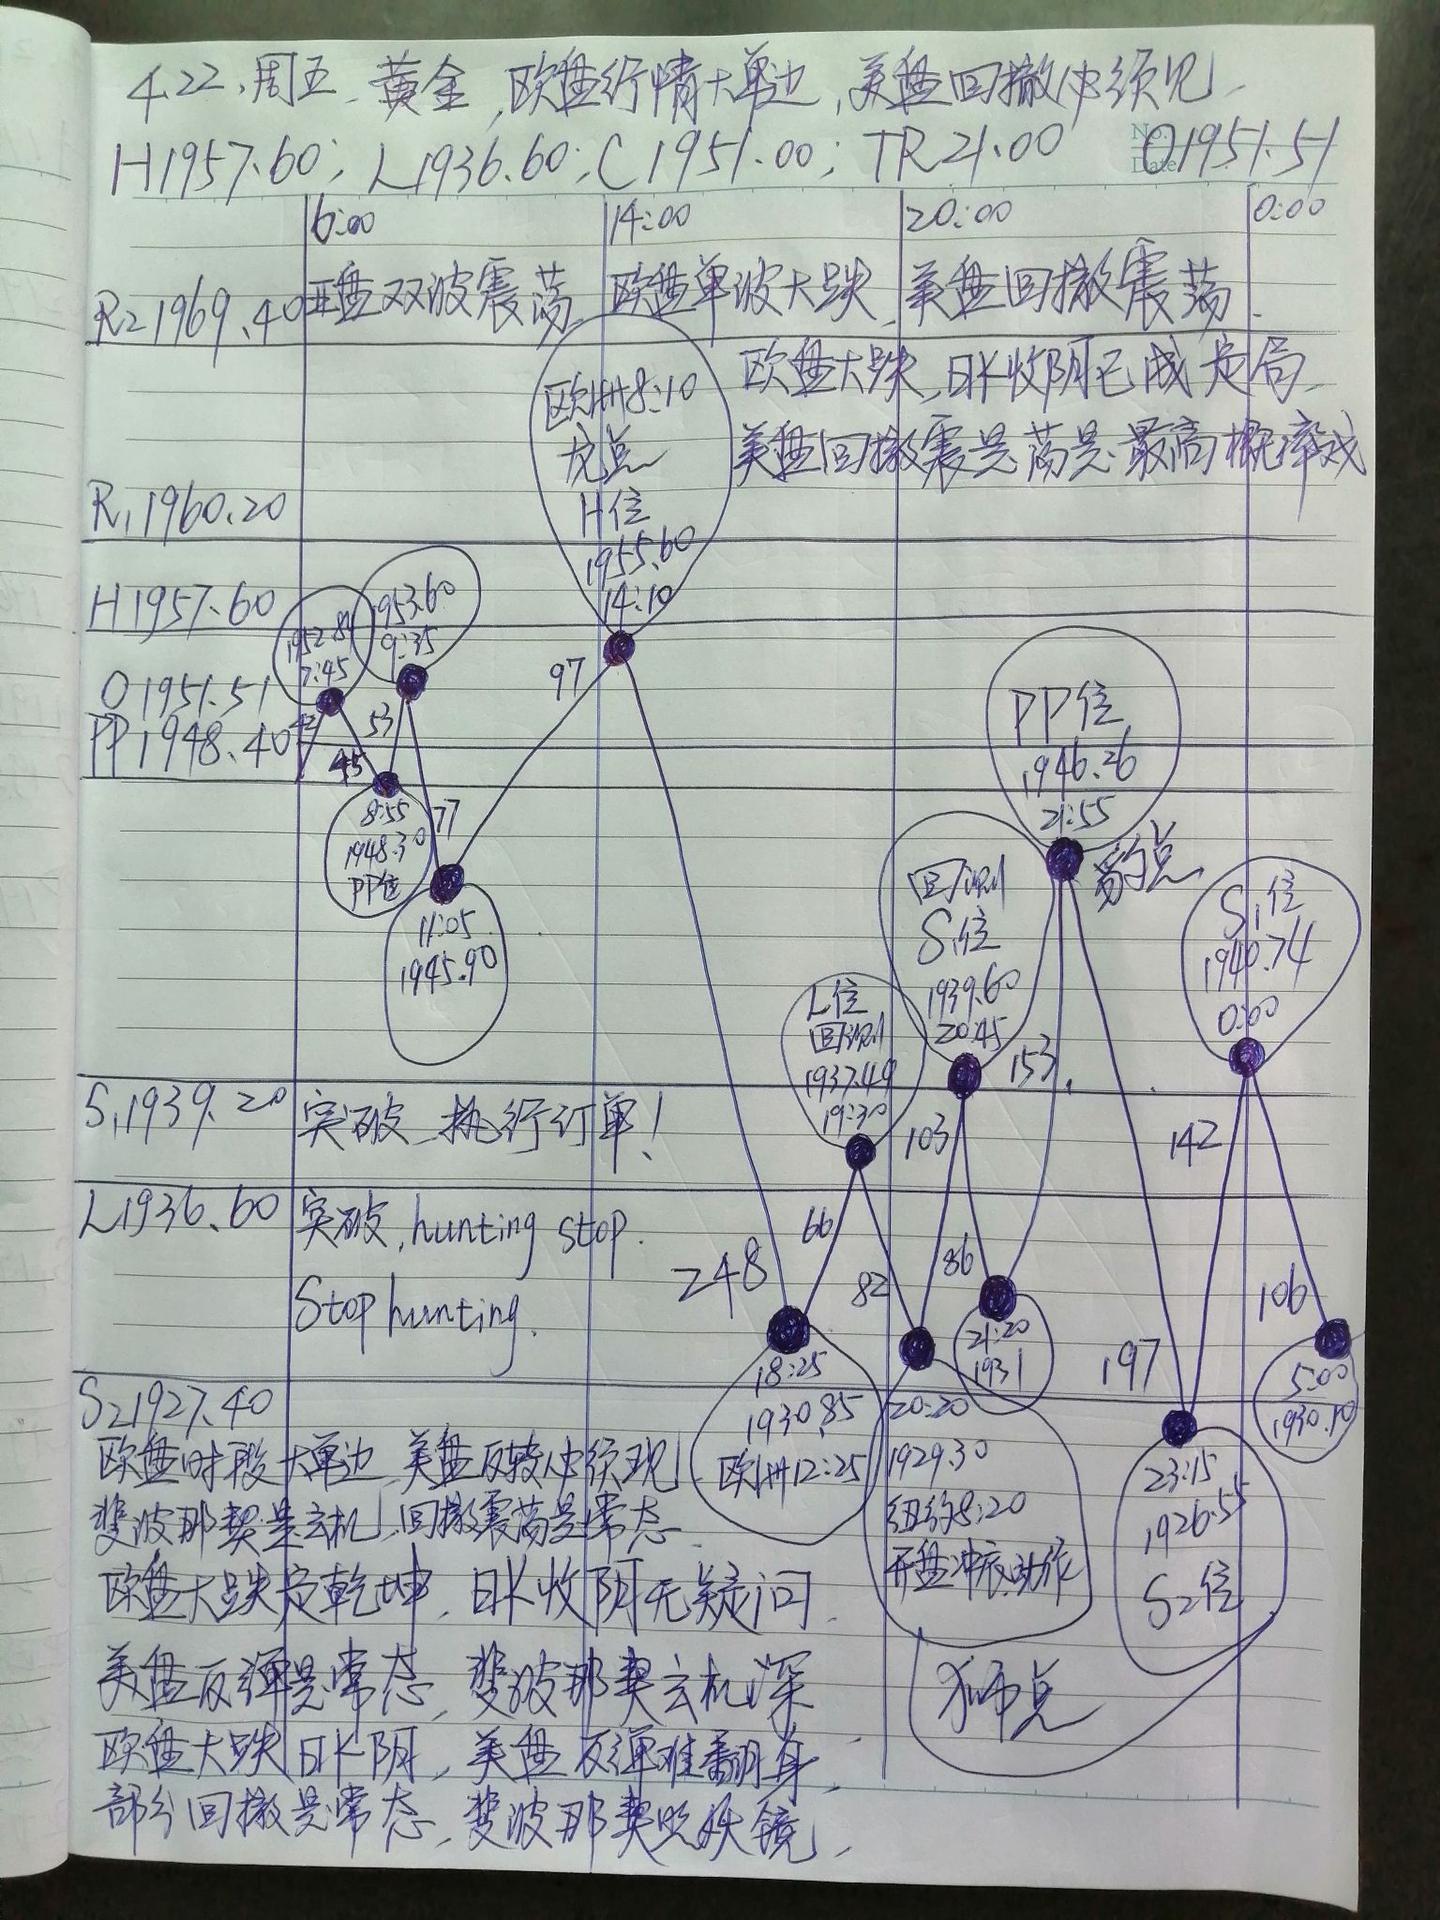 4.22、周五、黄金、欧盘行情大单边,美盘回撤必须见、
H1957.60; L1936.60; C1951.00; TR21.00 O1951.51
No.
Date
6:00 14:00 20:00 0:00
R2 1969.40 亚盘双波震荡 欧盘单波大跌 美盘回撤震荡.
欧盘大跌,日K收阴已成定局、
美盘回撤震是荡是.最高概率或
欧洲8:10
龙点
H位
1955.60
14:10
R1 1960.20
H1957.60
1952.84
7:45
1953.60
9:35
O1951.51
PP1948.40
45
53
97
77
8:55
1948.30
PP位
11:05
1945.90
PP位
1946.26
21:55
豹点
回测
S1位
1939.60
20:45
L位
回测
1937.49
19:30
S1位
1940.74
0:00
S1 1939.20 突破、执行订单!
103
153
142
L1936.60 突破,hunting stop.
Stop hunting.
248
66
82
86
197
106
18:25
1930.85
欧洲12:25
20:20
1929.30
纽约8:20
开盘冲底动作
21:20
1931
23:15
1926.55
S2位
5:00
1930.10
狮点
S2 1927.40
欧盘时段大单边、美盘反转必须现
斐波那契是玄机、回撤震荡是常态
欧盘大跌定乾坤,日K收阴无疑问、
美盘反弹是常态,斐波那契玄机深
欧盘大跌日K阴,美盘反弹难翻身,
部分回撤是常态、斐波那契照妖镜,